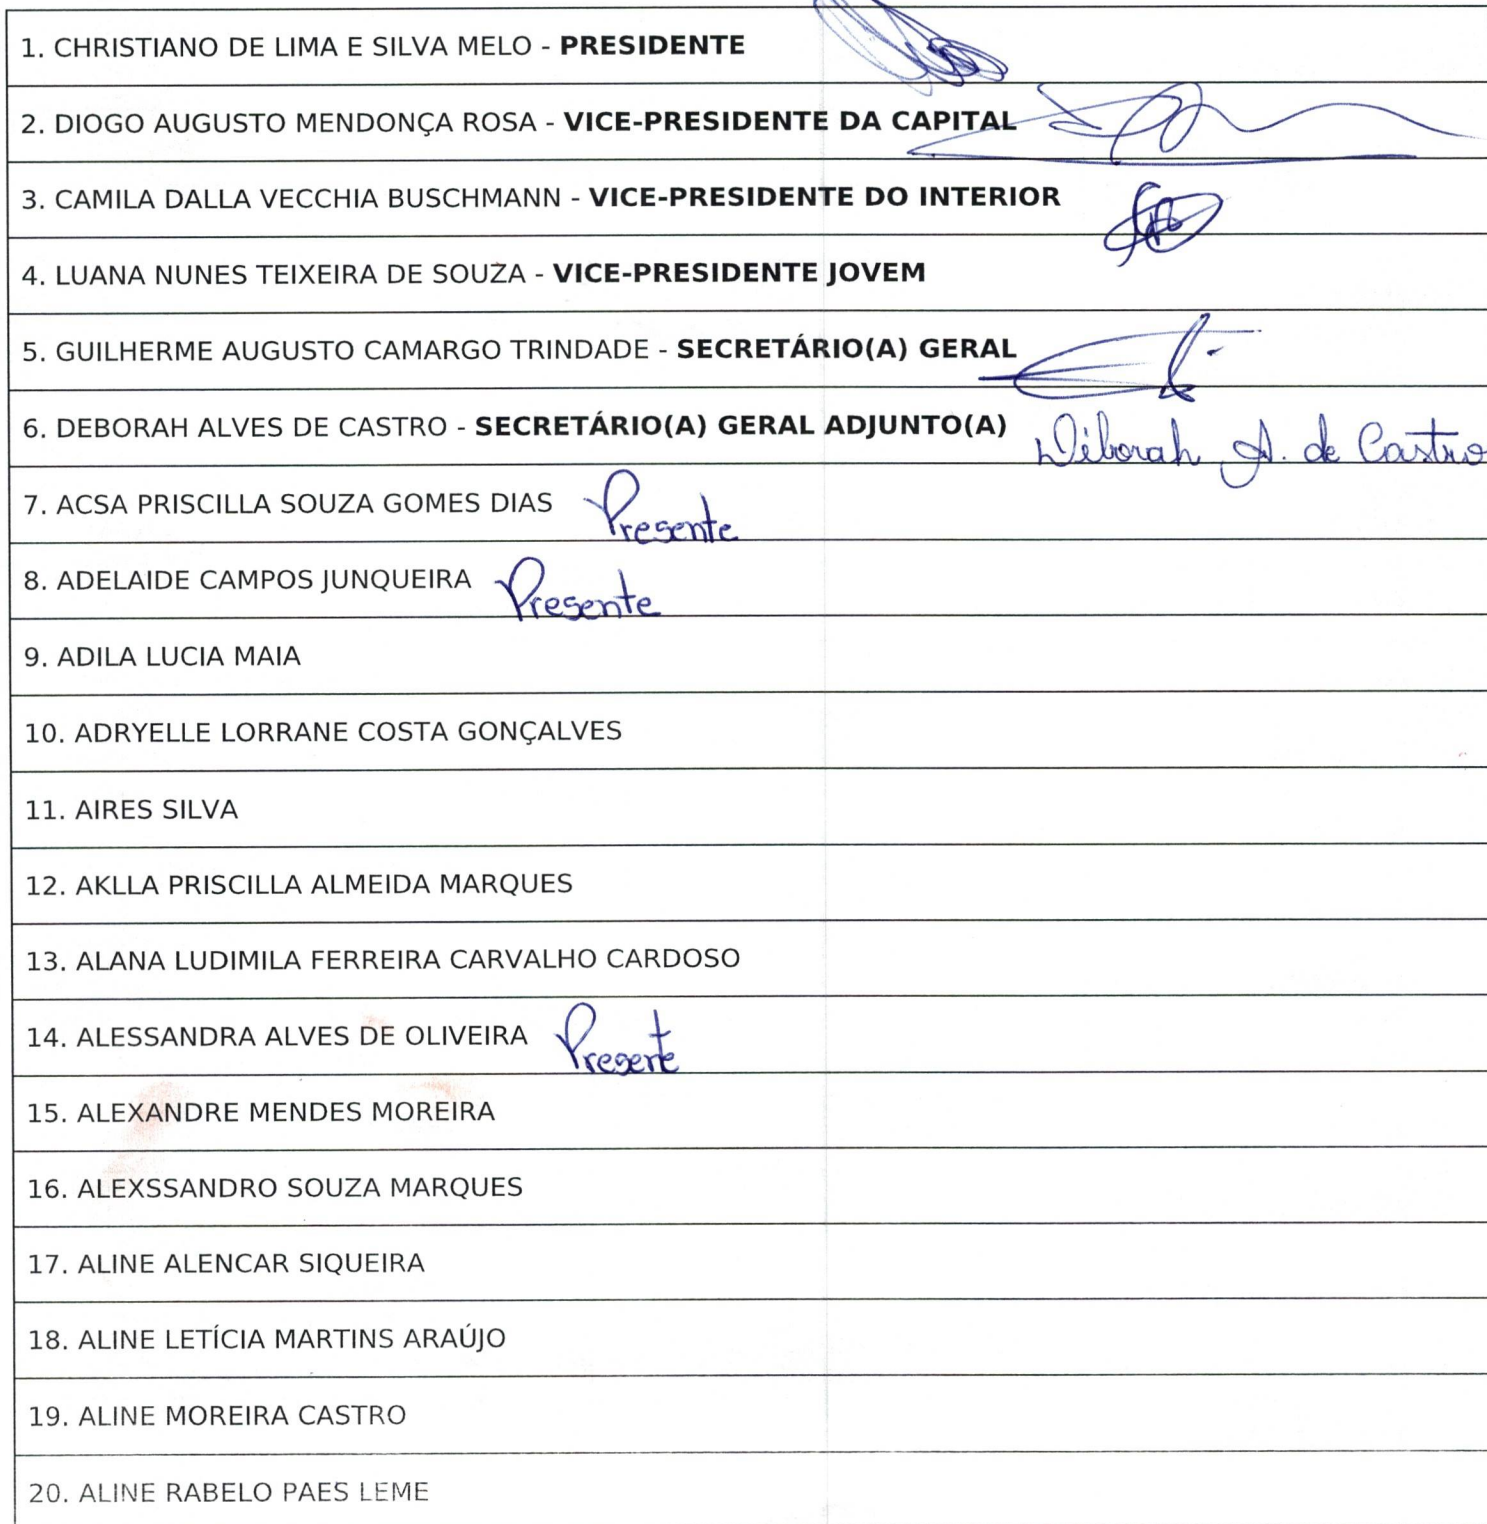 1. CHRISTIANO DE LIMA E SILVA MELO - PRESIDENTE
2. DIOGO AUGUSTO MENDONÇA ROSA - VICE-PRESIDENTE DA CAPITAL
3. CAMILA DALLA VECCHIA BUSCHMANN - VICE-PRESIDENTE DO INTERIOR
4. LUANA NUNES TEIXEIRA DE SOUZA - VICE-PRESIDENTE JOVEM
5. GUILHERME AUGUSTO CAMARGO TRINDADE - SECRETÁRIO(A) GERAL
6. DEBORAH ALVES DE CASTRO - SECRETÁRIO(A) GERAL ADJUNTO(A) Déborah A. de Castro
7. ACSA PRISCILLA SOUZA GOMES DIAS Presente
8. ADELAIDE CAMPOS JUNQUEIRA Presente
9. ADILA LUCIA MAIA
10. ADRYELLE LORRANE COSTA GONÇALVES
11. AIRES SILVA
12. AKLLA PRISCILLA ALMEIDA MARQUES
13. ALANA LUDIMILA FERREIRA CARVALHO CARDOSO
14. ALESSANDRA ALVES DE OLIVEIRA Presente
15. ALEXANDRE MENDES MOREIRA
16. ALEXSSANDRO SOUZA MARQUES
17. ALINE ALENCAR SIQUEIRA
18. ALINE LETÍCIA MARTINS ARAÚJO
19. ALINE MOREIRA CASTRO
20. ALINE RABELO PAES LEME